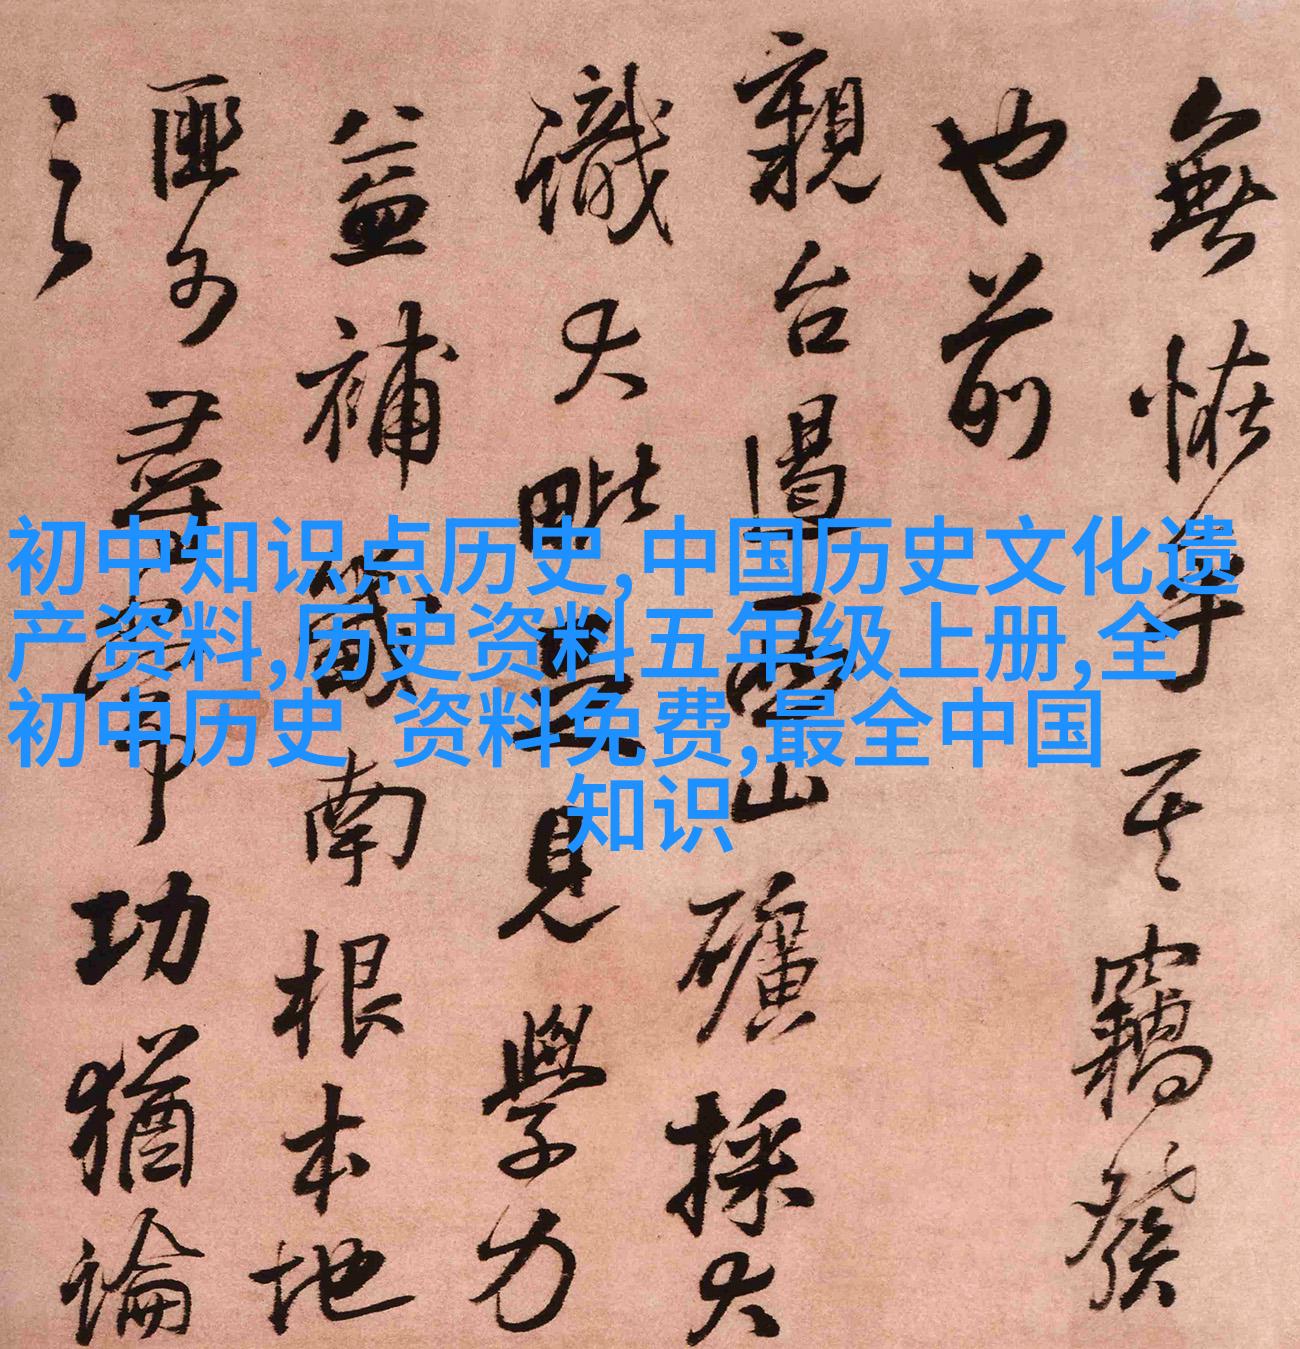 無恠乎其竊發
也前
親台遏西山礦採大
識大毗見學力
益補南根本地
匪尋常功猶論
之
初中知识点历史,中国历史文化遗
产资料,历史资料五年级上册,全
初中历史 资料免费,最全中国
知识